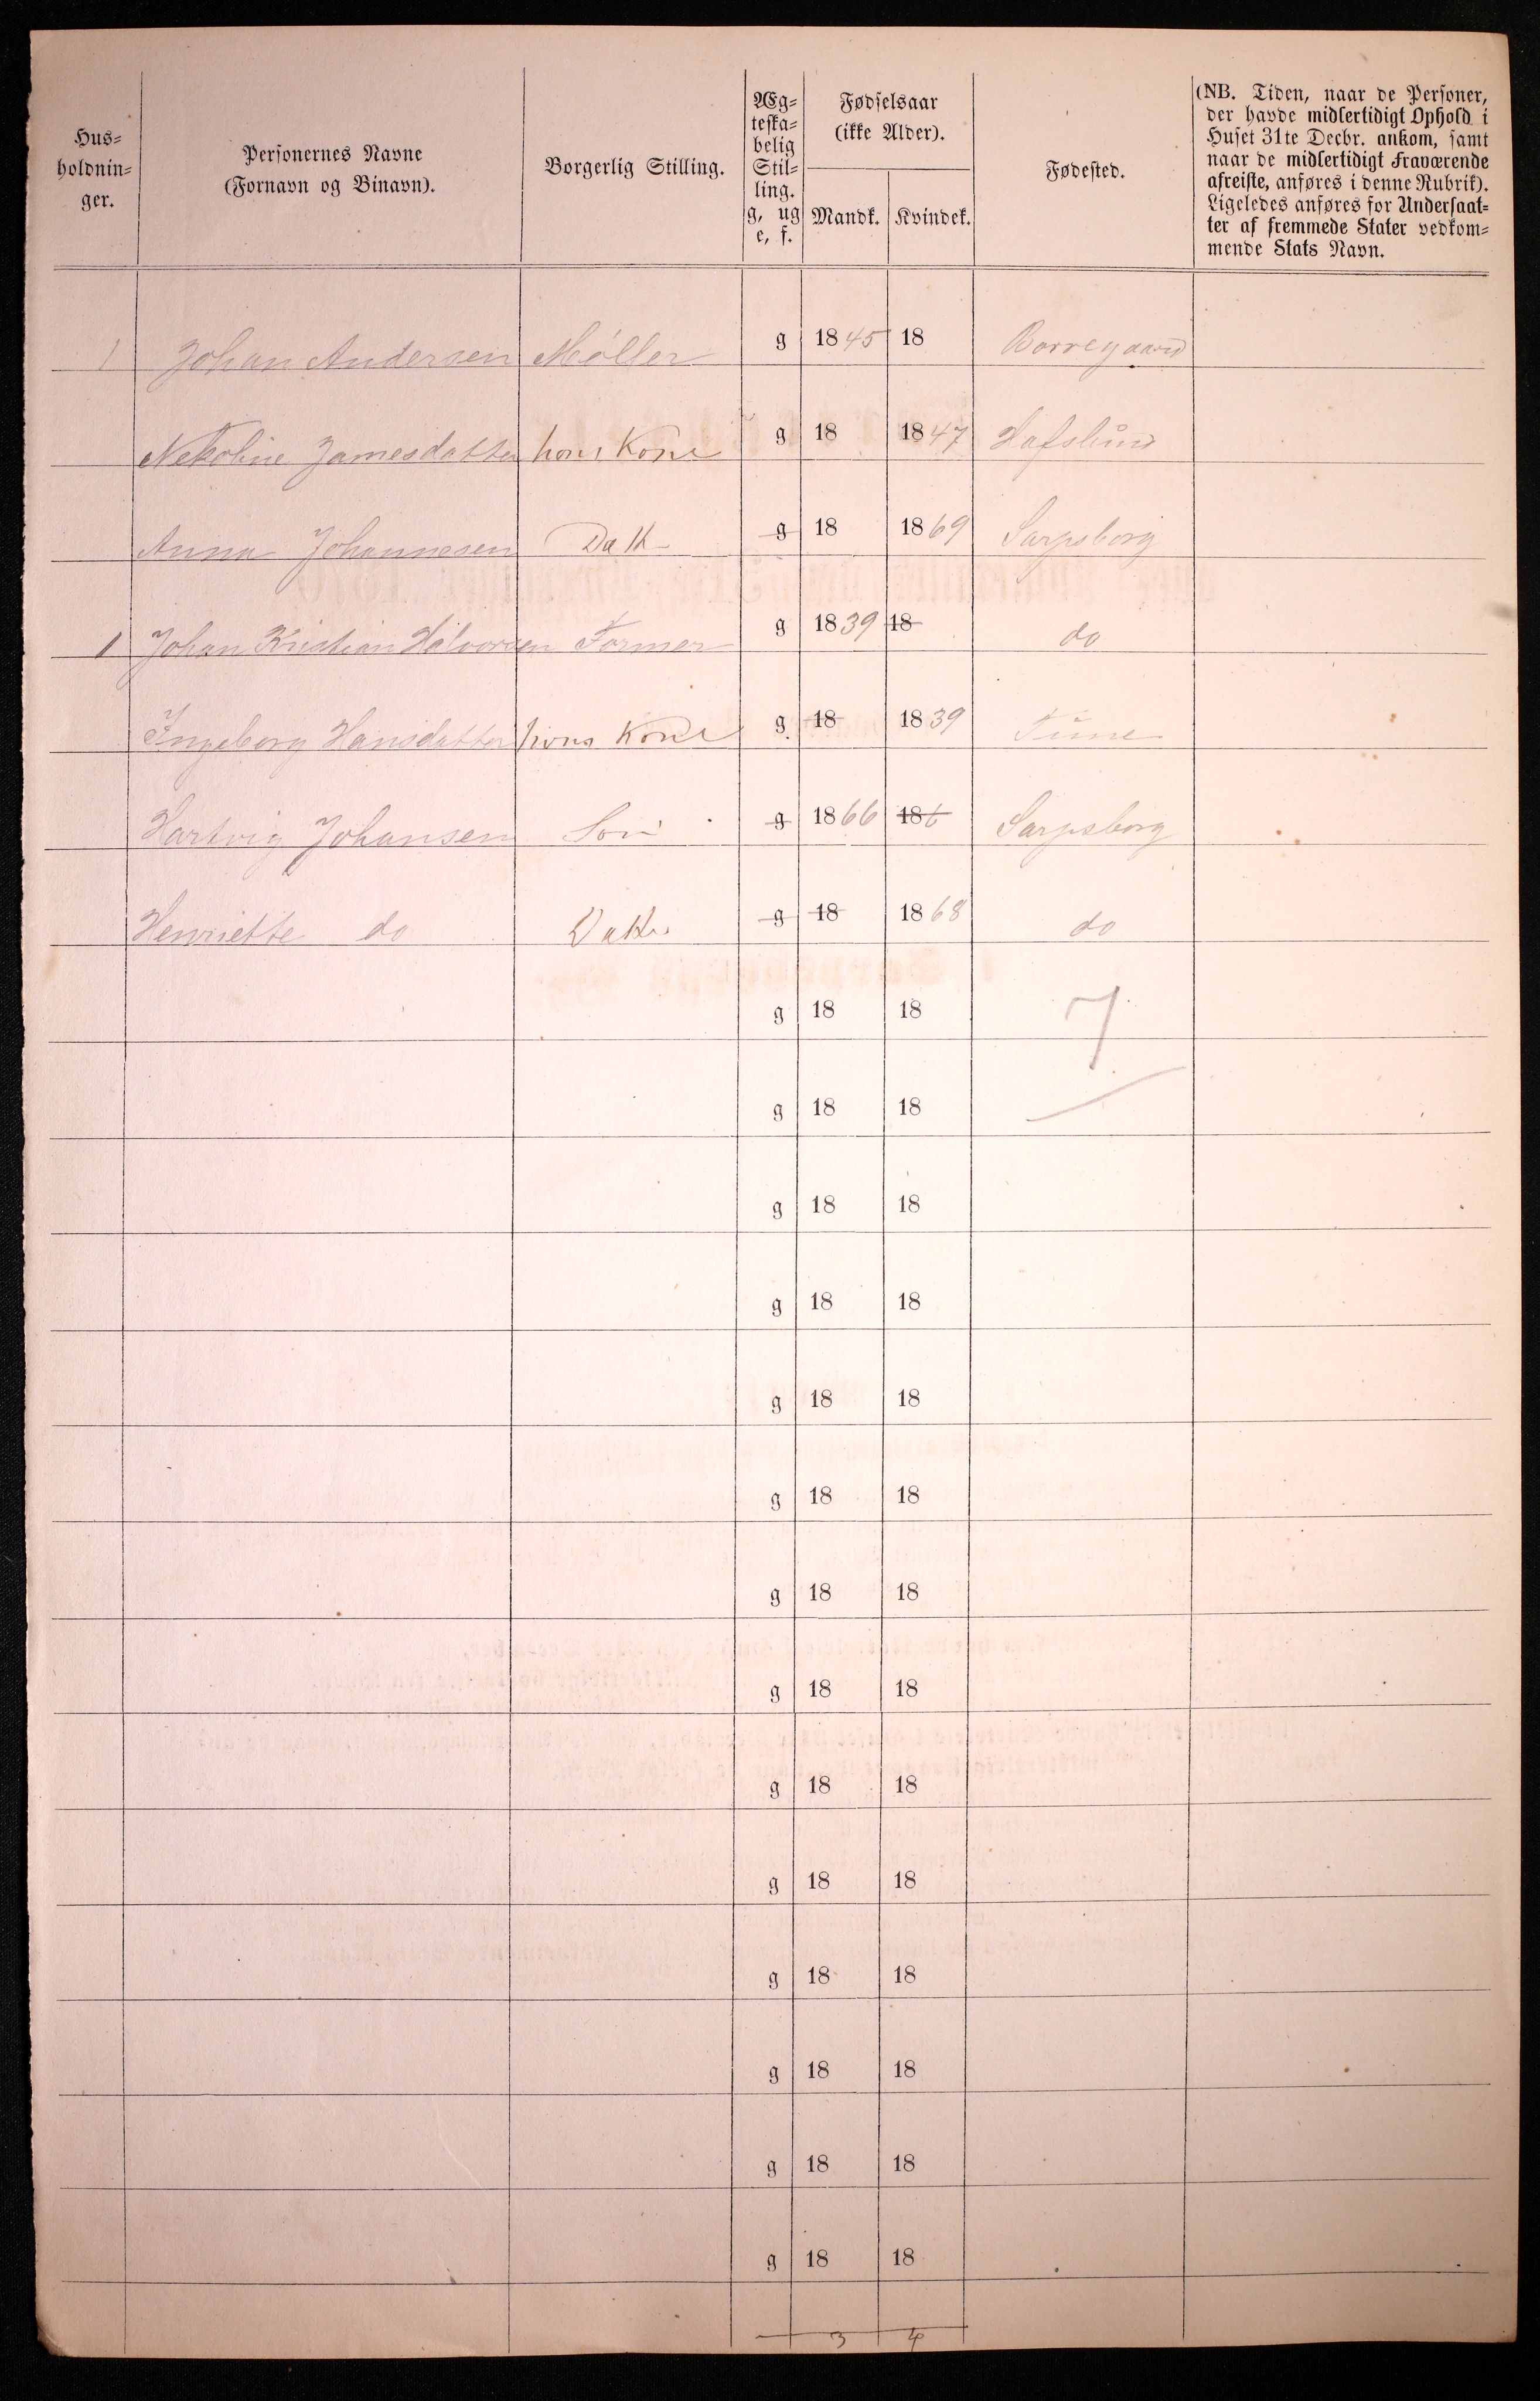 Hus=
holdnin=
ger.
Personernes Navne
(Fornavn og Binavn).
Borgerlig Stilling.
Æg=
teska=
belig
Stil=
ling.
g, ug
e, f.
Fødselsaar
(ikke Alder).
Mandk. Kvindek.
Fødested.
(NB. Tiden, naar de Personer,
der havde midlertidigt Ophold i
Huset 31te Decbr. ankom, samt
naar de midlertidigt Fraværende
afreiste, anføres i denne Rubrik).
Ligeledes anføres for Undersaat=
ter af fremmede Stater vedkom=
mende Stats Navn.
1 Johan Andersen Møller g 1845 18 Borregaard
Jamesdatter hans Kone g 18 1847 Hafslund
Anna Johannesen Datt g 18 1869 Sarpsborg
1 Johan Kristian Halvorsen Former g 1839 18 do
Ingeborg Hansdatter hans Kone g 18 1839 Tune
Hartvig Johansen Søn g 1866 186 Sarpsborg
Henriette do Datter g 18 1868 do
g 18 18 7
g 18 18
g 18 18
g 18 18
g 18 18
g 18 18
g 18 18
g 18 18
g 18 18
g 18 18
g 18 18
g 18 18
g 18 18
g 18 18
3 4